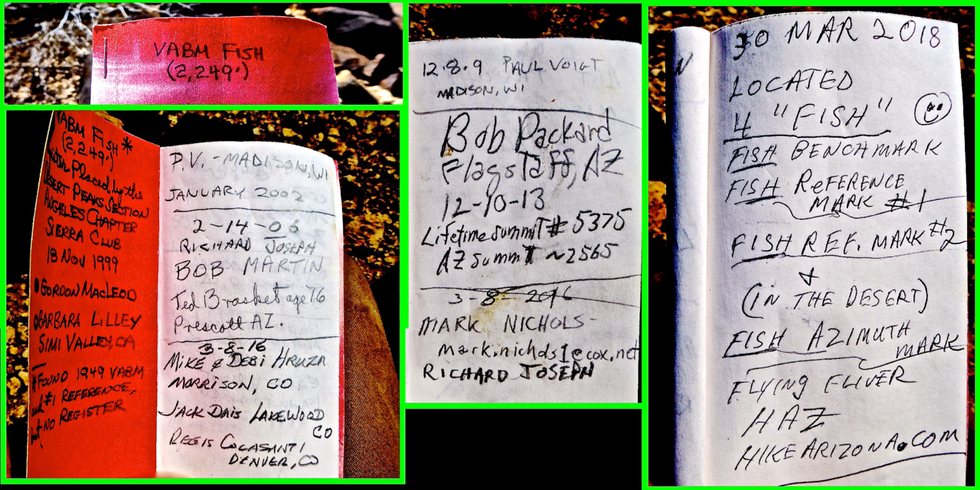 VABM FISH
(2,249')
VABM FISH *
(2,249')
Placed by the
DESERT PEAKS SECTION
ANGELES CHAPTER
SIERRA CLUB
18 NOV 1999
GORDON MACLEOD
BARBARA LILLEY
SIMI VALLEY, CA
* FOUND 1949 VABM
and #1 REFERENCE,
but NO REGISTER
P.V. - MADISON, WI
JANUARY 2002
2-14-06
RICHARD JOSEPH
BOB MARTIN
Ted Brasket age 76
Prescott AZ.
3-8-16
MIKE & DEBI HRUZA
MORRISON, CO
JACK DAIS LAKEWOOD
CO
REGIS COCASANTI
DENVER, CO
12.8.9 PAUL VOIGT
MADISON, WI
Bob Packard
Flagstaff, AZ
12-10-13
Lifetime summit # 5375
AZ summit ~2565
3-8-2016
MARK NICHOLS-
mark.nichols1@cox.net
RICHARD JOSEPH
30 MAR 2018
LOCATED
4 "FISH"
FISH BENCHMARK
FISH REFERENCE
MARK #1
FISH REF. MARK #2
&
(IN THE DESERT)
FISH AZIMUTH
MARK
FLYING FLIVER
HAZ
HIKEARIZONA.COM